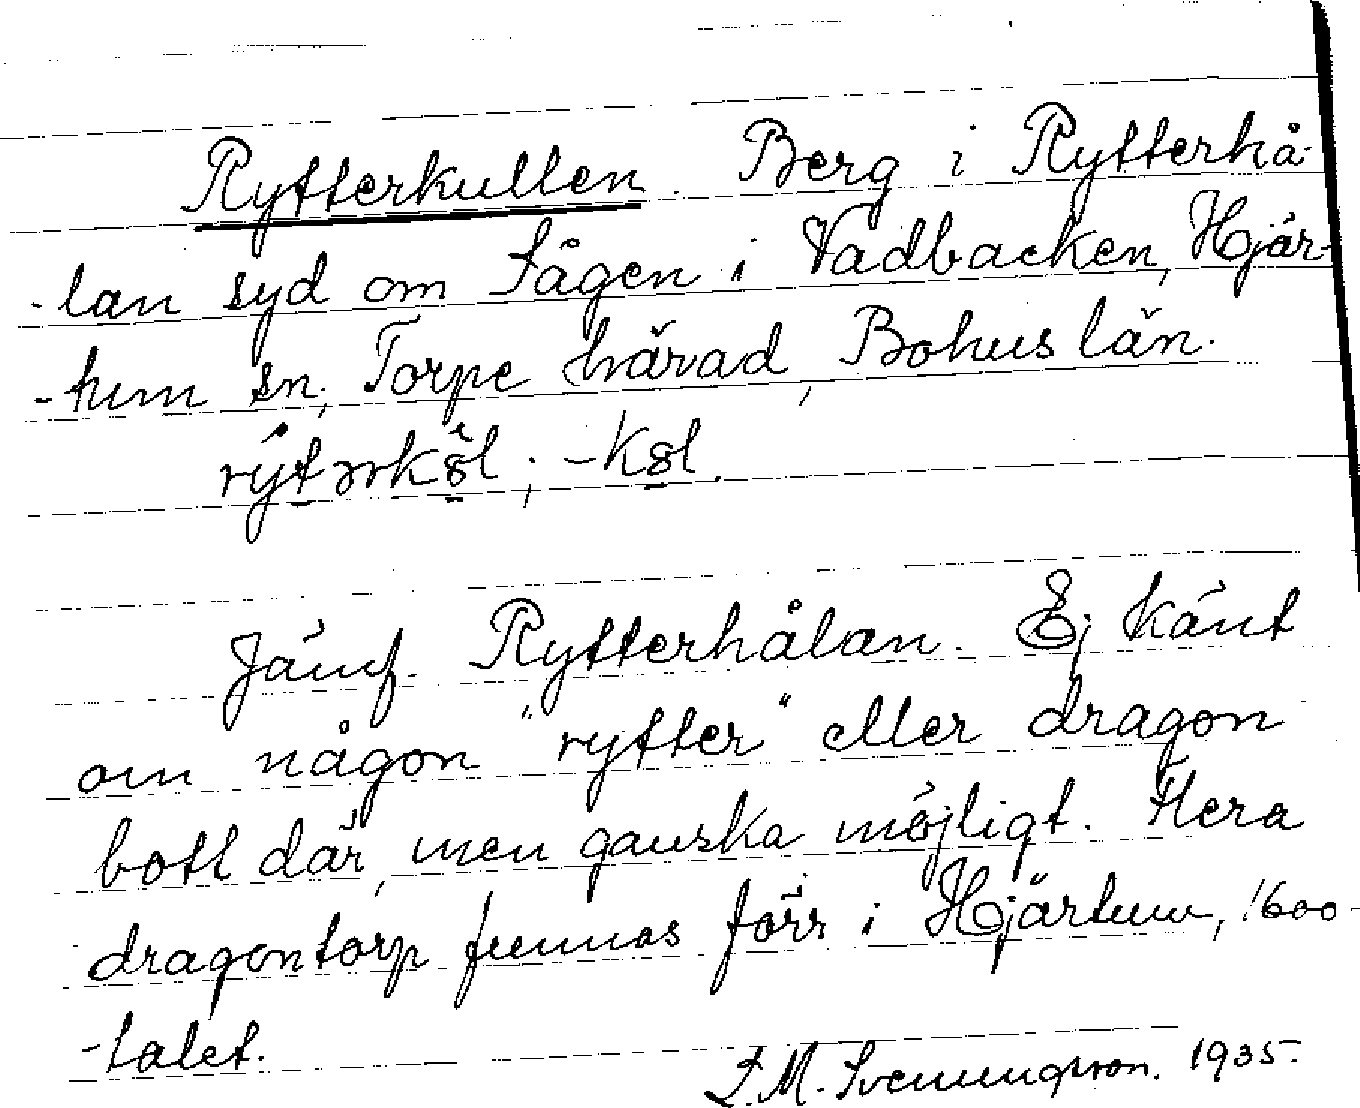 Rytterkullen. Berg i Rytterhå-
-lan syd om Sågen i Vadbacken, Hjär-
-tum sn, Torpe härad, Bohus län.
Jämf. Rytterhålan. Ej känt
om någon "rytter" eller dragon
bott där, men ganska möjligt. Flera
dragontorp funnos förr i Hjärtum, 1600-
-talet.
S.M. Svenungsson. 1935.